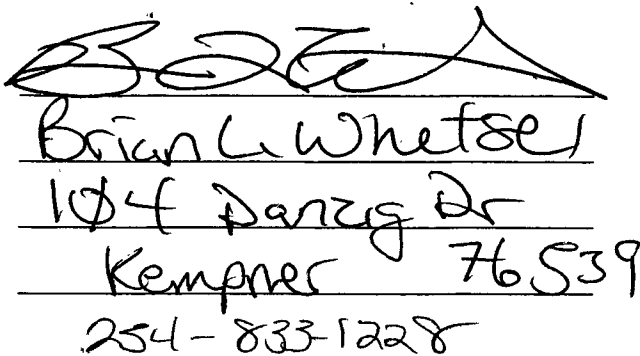 Brian L. Whetsel
104 Danzig Dr
Kempner 76539
254-833-1228